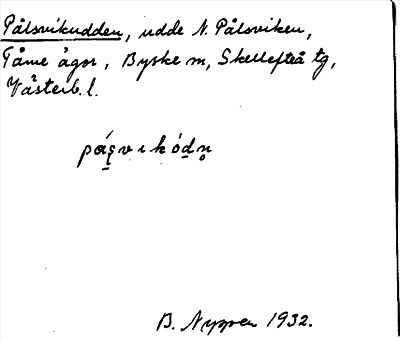 Pålsvikudden, udde N. Pålsviken,
Tåme ägor, Byske sn, Skellefteå tg,
Västerb. l.
B. Nyman 1932.